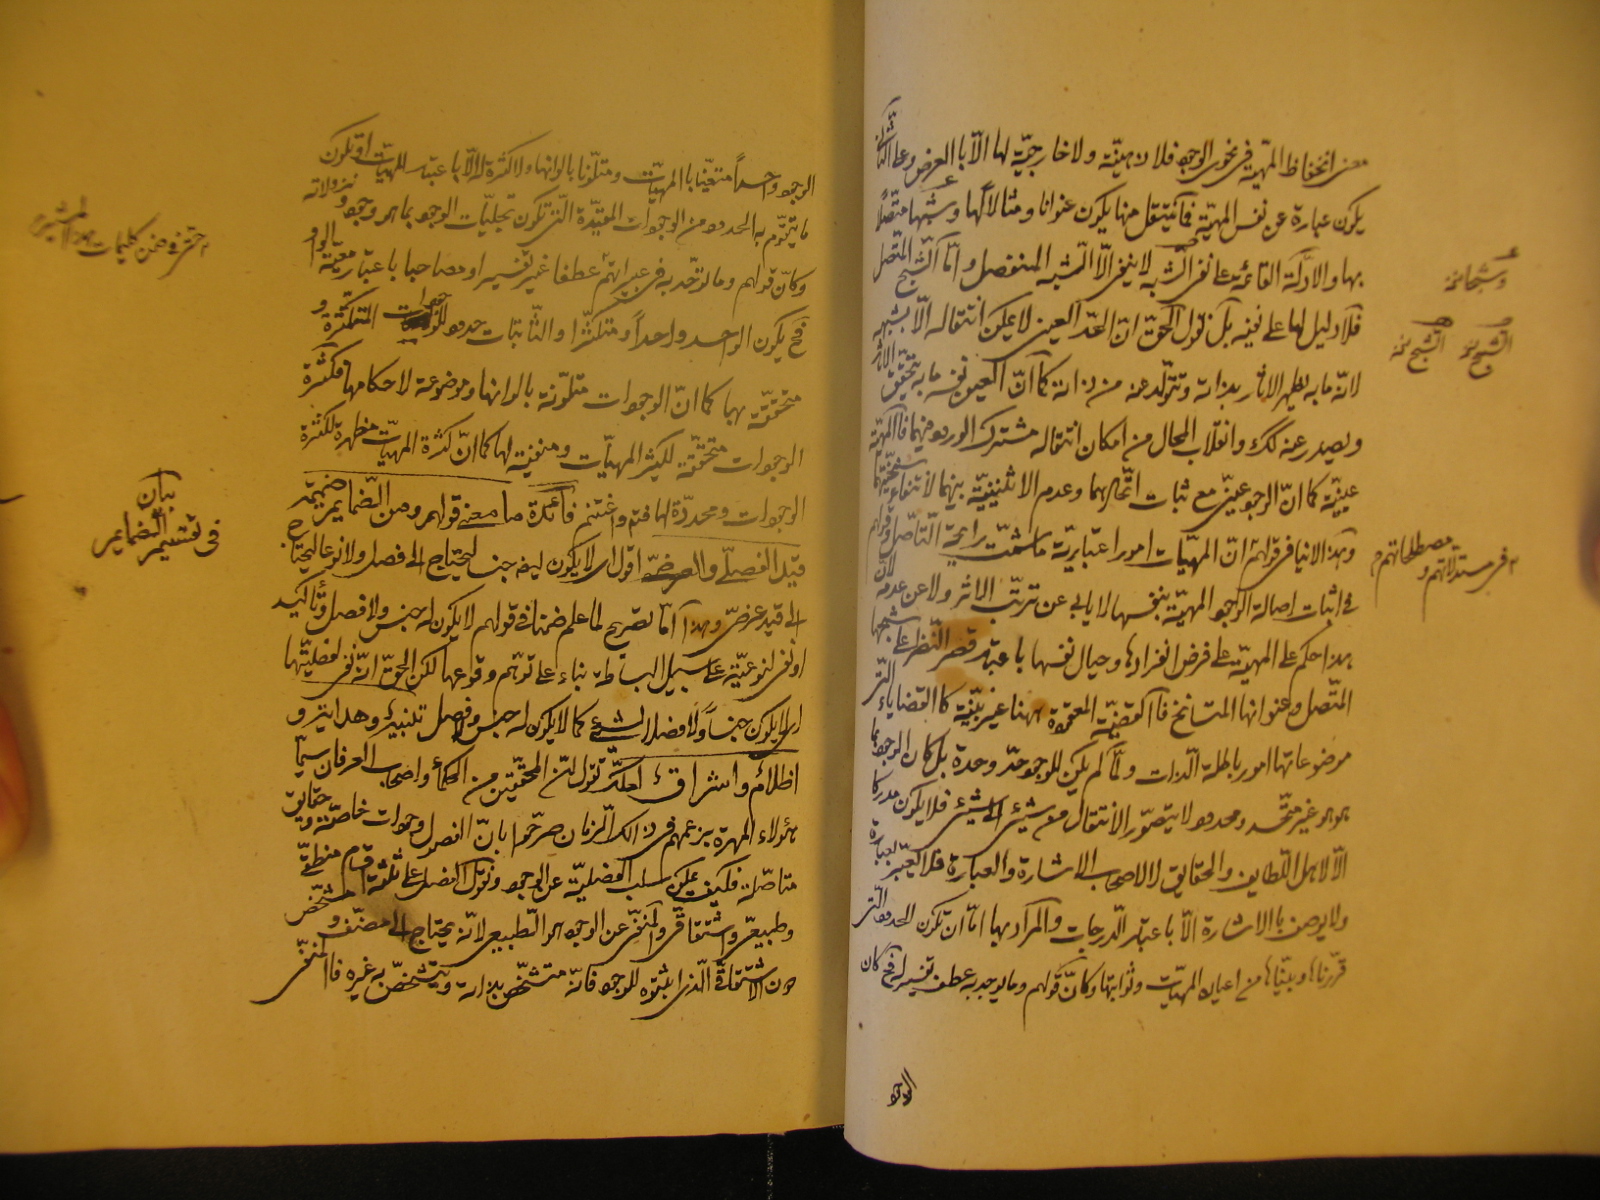 معنى انحفاظ المهيّة في نحوى الوجود فلا ذهنيّة ولا خارجيّة لها الّا بالعرض وعلى الثّانى
يكون عبارة عن نفس المهيّة فما ينتقل منها يكون عنوانا ومثالا لها وشبحا متّصلا
بها والادلّة القائمة على نفى الشّبح لا ينفى الّا الشّبح المنفصل وامّا الشّبح المتّصل
فلا دليل لها على نفيه بل نقول الحقّ انّ الحدّ العينى لا يمكن انتقاله الّا بشبحه
لانّه ما به يظهر الاثار بذاته وتتولّد عنه من ذاته كما انّ العين نفس ما به يتحقّق الاثار
ويصدر عنه لك وانقلاب المحال من امكان انتقاله مشترك الورود فيهما فالمهيّة
عينيّة كما انّ الوجود عينىّ مع ثبات اتّحادهما وعدم الاثنينيّة بينهما
وهذا لا ينافى قولهم انّ المهيّات امور اعتباريّة ما شمّت رايحة التّاصّل وقولهم
فى اثبات اصالة الوجود المهيّة بنفسها لا يابى عن ترتّب الاثر ولا عن عدمه لانّ
هذا حكم على المهيّة على فرض انفرادها وحيال نفسها باعتبار قصر النّظر على شبحها
المتّصل وعنوانها المتسانخ فالقضيّة المعقودة ههنا غير بتيّة كالقضايا الّتى
موضوعاتها امور باطلة الذّات ولمّا لم يكن للوجود حدّ وحدة بل كان الوجود بما
هو هو غير متّحد ومحدود لا يتصوّر الانتقال من شىء الى شىء فلا يكون مدركا
الّا لاهل اللّطاين والحقايق لا لاصحاب الاشارة والعبارة فلا يعبّر بعبارة
ولا يوصف بالاشارة الّا باعتبار الدّرجات والمراد بها امّا ان تكون الحدود الّتى
قرّرناها وبيّنّاها من اعيان المهيّات وثوابتها وكانّ قولهم وما يوجد به عطف تفسير له فح كان
الوجود
وشبحا نخه
الشبح نخه الشبح نخه
فى مستدلاتهم و مصطلحاتهم
الوجود واحداً متعيّنا بالمهيّات ومتلّونا بالوانها ولا كثرة له الّا باعتبار المهيّات او تكون
ما يتقوّم به الحدود من الوجودات المقيّدة الّتى تكون تجليّات الوجود بما هو وجود و تنزولاته
وكانّ قولهم وما توحّد به فى عبراتهم عطفا غير تفسير او مصاحبا باعتبار معيّة الواو
فح يكون الواحد واحداً ومتكثّرا والثّابتات حدود للوجودات المتكثّرة و
متحقّقة بها كما انّ الوجودات متلوّنة بالوانها وموضوعة لاحكامها فكثرة
الوجودات متحقّقة لتكثّر المهيّات ومفنية لها كما انّ كثرة المهيّات مظهرة لكثرة
الوجودات ومحدّدة لها فتم واغتنم فائدة ما معنى قولهم ومن الضّمايم ضميمة
قيد الفصلىّ والعرضىّ اقول اى لا يكون ليفه جنس ليحتاج الى فصل ولا نوعا ليحتاج
الى قيد عرضىّ وهذا امّا تصريح لما علم ضمنا فى قولهم لا يكون له جنس ولا فصل وتاكيد
او نفى لنوعيّة على سبيل البساطة بناء على توهّم وقوعها لكن الحقّ انّه نفى لفصليّتها
اى لا يكون جنساً ولا فصلا لشىء كما لا يكون له جنس وفصل تلبيزء وهدايتزو
اظلام واشراقء لعلّك تقول انّ المحقّقين من الحكماء واصحاب العرفان سيّما
هؤلاء المهرة بزعمهم فى ذالك الزّمان صرّحوا بانّ الفصول وجودات خاصّة وحقايق
متاصّلة فكيف يمكن سلب الفصليّة عن الوجود ونقول الفصل على ثلثة اقسام منطقىّ
وطبيعىّ واشتقاقىّ والمنفىّ عن الوجود هو الطّبيعى لانّه يحتاج الى مصنّف و مشخّص
دون الاشتقاقى الّذى اثبتوه للوجود فانّه متشخّص بذاته ويتشخّص به غيره فالمنفىّ
بيان
فى تقسيم الضماير